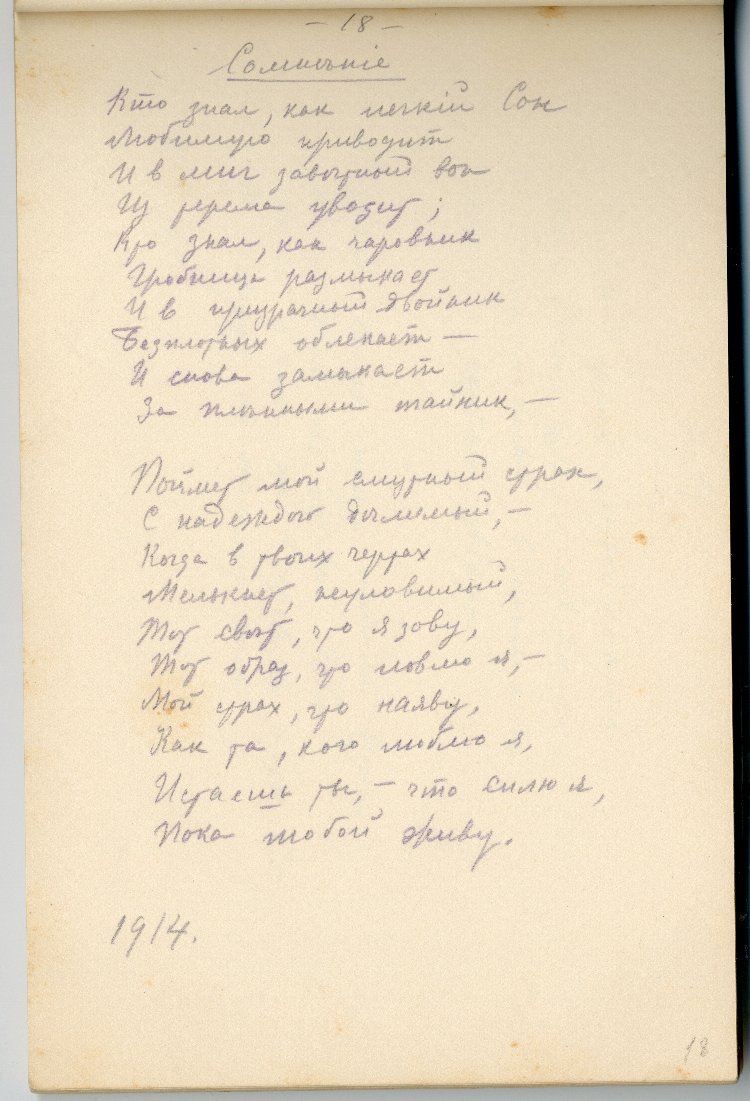 — 18 —
Сомнѣніе
Кто знал, как легкій Сон
Любимую приводит
И в миг завѣтный вон
Из терема уводит;
Кто знал, как чаровник
Гробницы размыкает
И в призрачный двойник
Безплотных облекает —
И снова замыкает
За плѣнными тайник, —
Поймет мой смутный страх,
С надеждою дѣлимый, —
Когда в твоих чертах
Мелькнет, неуловимый,
Тот свѣт, что я зову,
Тот образ, что ловлю я, —
Мой страх, что наяву,
Как та, кого люблю я,
Истаешь ты, — что сплю я,
Пока тобой живу.
1914.
18